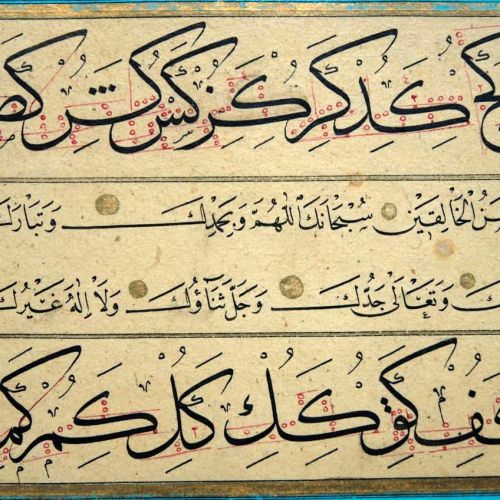 كد كر كز كس كش
الْخَالِقِينَ سُبْحَانَكَ اللّٰهُمَّ وَبِحَمْدِكَ وَتَبَارَكَ
وَتَعَالٰى جَدُّكَ وَجَلَّ ثَنَاؤُكَ وَلَا اِلٰهَ غَيْرُكَ
كق كك كل كم كم